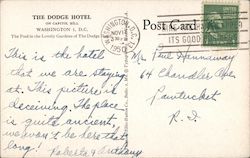 THE DODGE HOTEL
ON CAPITOL HILL
WASHINGTON 1, D.C.
The Pool in the Lovely Gardens of The Dodge Hotel
Post Card
WASHINGTON, D.C.
NOV 14
1950
ITS GOOD
This is the hotel
that we are staying
at. This picture is
deceiving. The place
is quite ancient,
we won't be here that
long!
Roberta & Anthony
Mr. Paul
64 Chandler Ave.
Pawtucket
R. I.